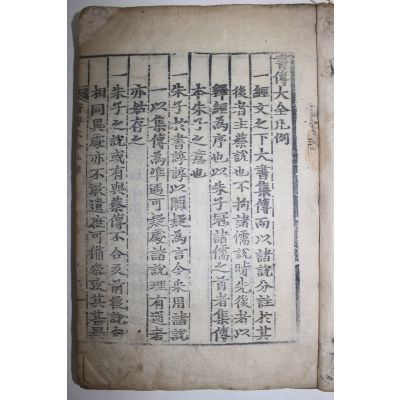 書傳大全凡例
一經文之下大書集傳而以諸說分註於其
後者主蔡說也不拘諸儒說時先後者以
釋經爲序也以朱子冠諸儒之首者集傳
本朱子之意也
一朱子於書諄諄以闕疑爲言今采用諸說
一以集傳爲準遇可疑處諸說理有通者
亦存之
一朱子之說或有與蔡傳不合及前後說自
相同異處亦不敢遺庶可備參致其甚異